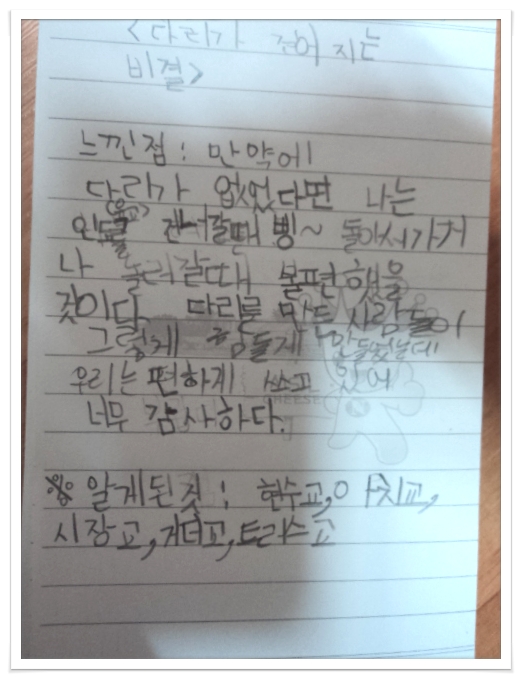 <다리가 건어 지는
비결>
느낀점: 만약에
다리가 없었다면 나는
갈때 삥~ 돌아서가거
나 놀러갈때 불편했을
것이다. 다리를 만든 사람들이
그렇게 힘들게 만들었는데
우리는 편하게 쓰고 있어
너무 감사하다.
※ 알게된것: 현수교, 아치교,
시장교, 거더교, 트러스교
CHEESE